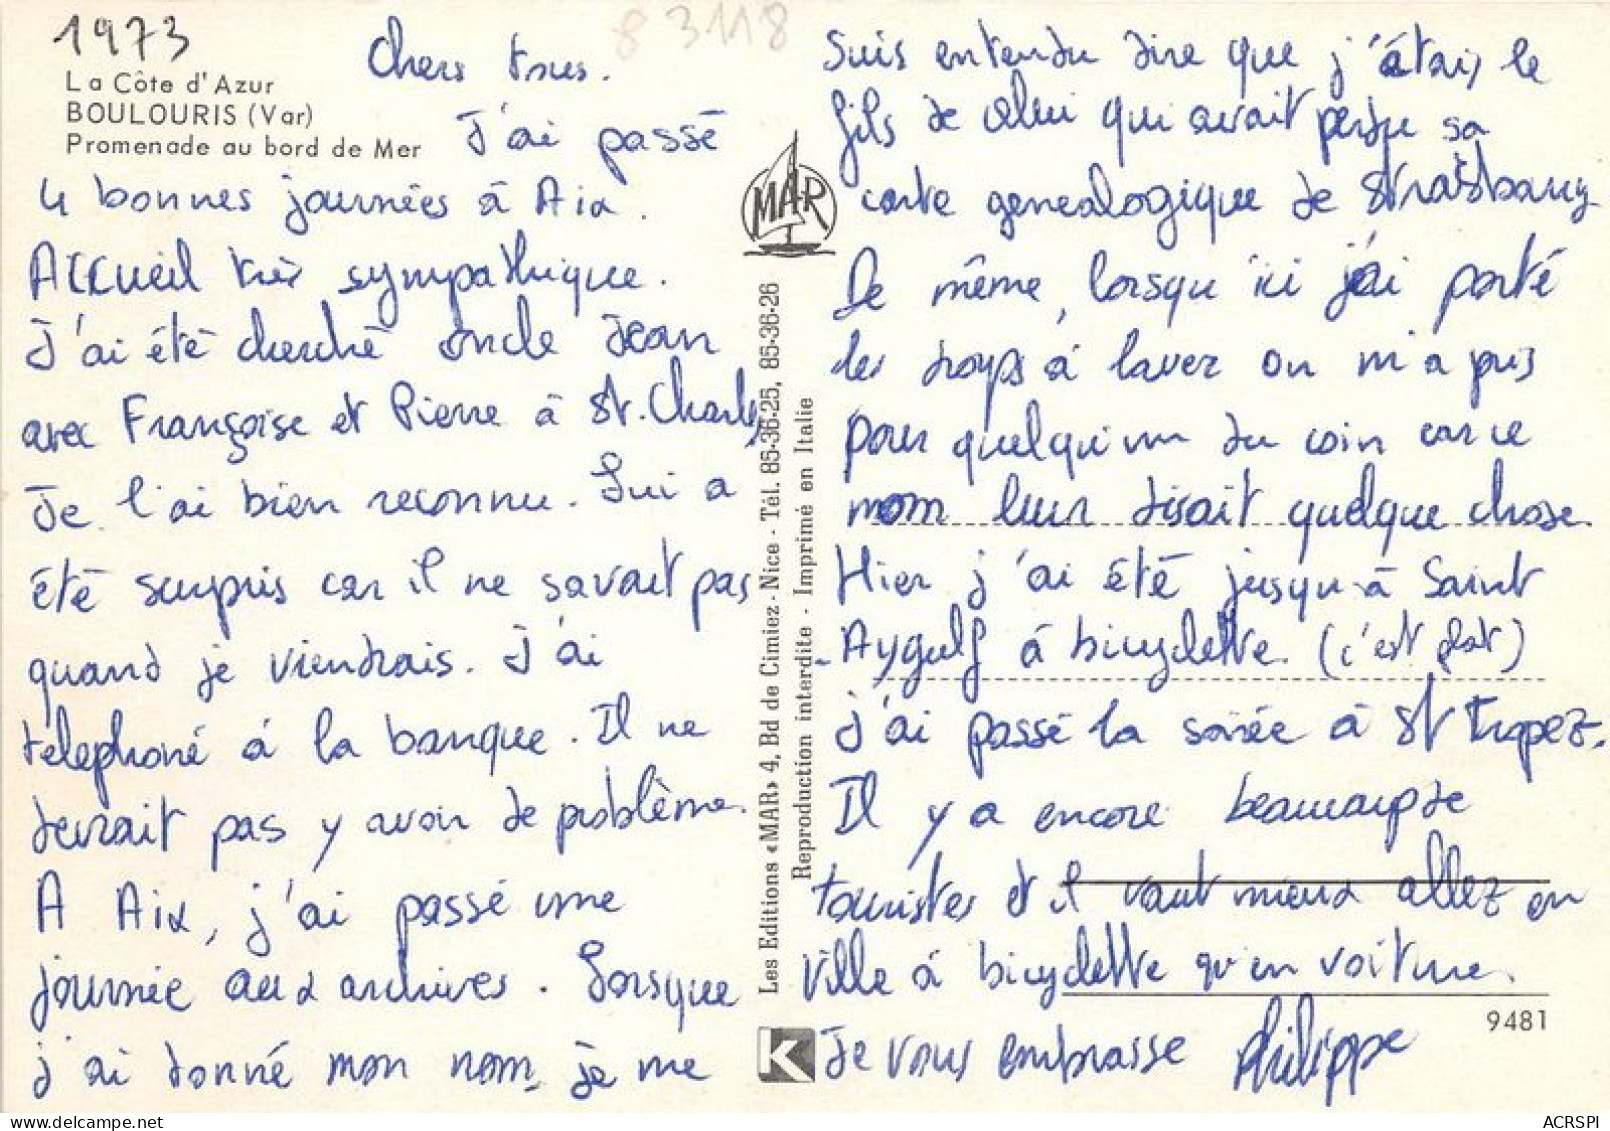 1973
83118
La Côte d'Azur
BOULOURIS (Var)
Promenade au bord de Mer
Chers tous.
J'ai passé
4 bonnes journées à Aix.
Accueil très sympathique.
J'ai été cherché oncle Jean
avec Françoise et Pierre à St. Charles
Je l'ai bien reconnu. Lui a
été surpris car il ne savait pas
quand je viendrais. J'ai
téléphoné à la banque. Il ne
devrait pas y avoir de problème.
A Aix, j'ai passé une
journée aux archives. Lorsque
j'ai donné mon nom, je me
suis entendu dire que j'étais le
fils de celui qui avait perdu sa
carte genealogique de Strasbourg.
De même, lorsqu'ici j'ai porté
les draps à laver on m'a pris
pour quelqu'un du coin car ce
nom leur disait quelque chose.
Hier j'ai été jusqu'à Saint
-Aygulf à bicyclette. (c'est plat)
J'ai passé la soirée à St Tropez.
Il y a encore beaucoup de
touristes et il vaut mieux allez en
ville à bicyclette qu'en voiture.
Je vous embrasse Philippe
MAR
Les Editions «MAR» 4, Bd de Cimiez - Nice - Tél. 85-36-25, 85-36-26
Reproduction interdite - Imprimé en Italie
K
9481
ACRSPI